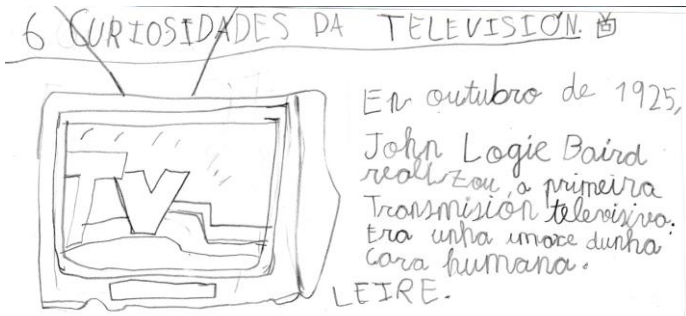 6 CURIOSIDADES DA TELEVISIÓN.
TV
En outubro de 1925,
John Logie Baird
realizou a primeira
Transmisión televisiva.
Era unha imaxe dunha
cara humana.
LEIRE.